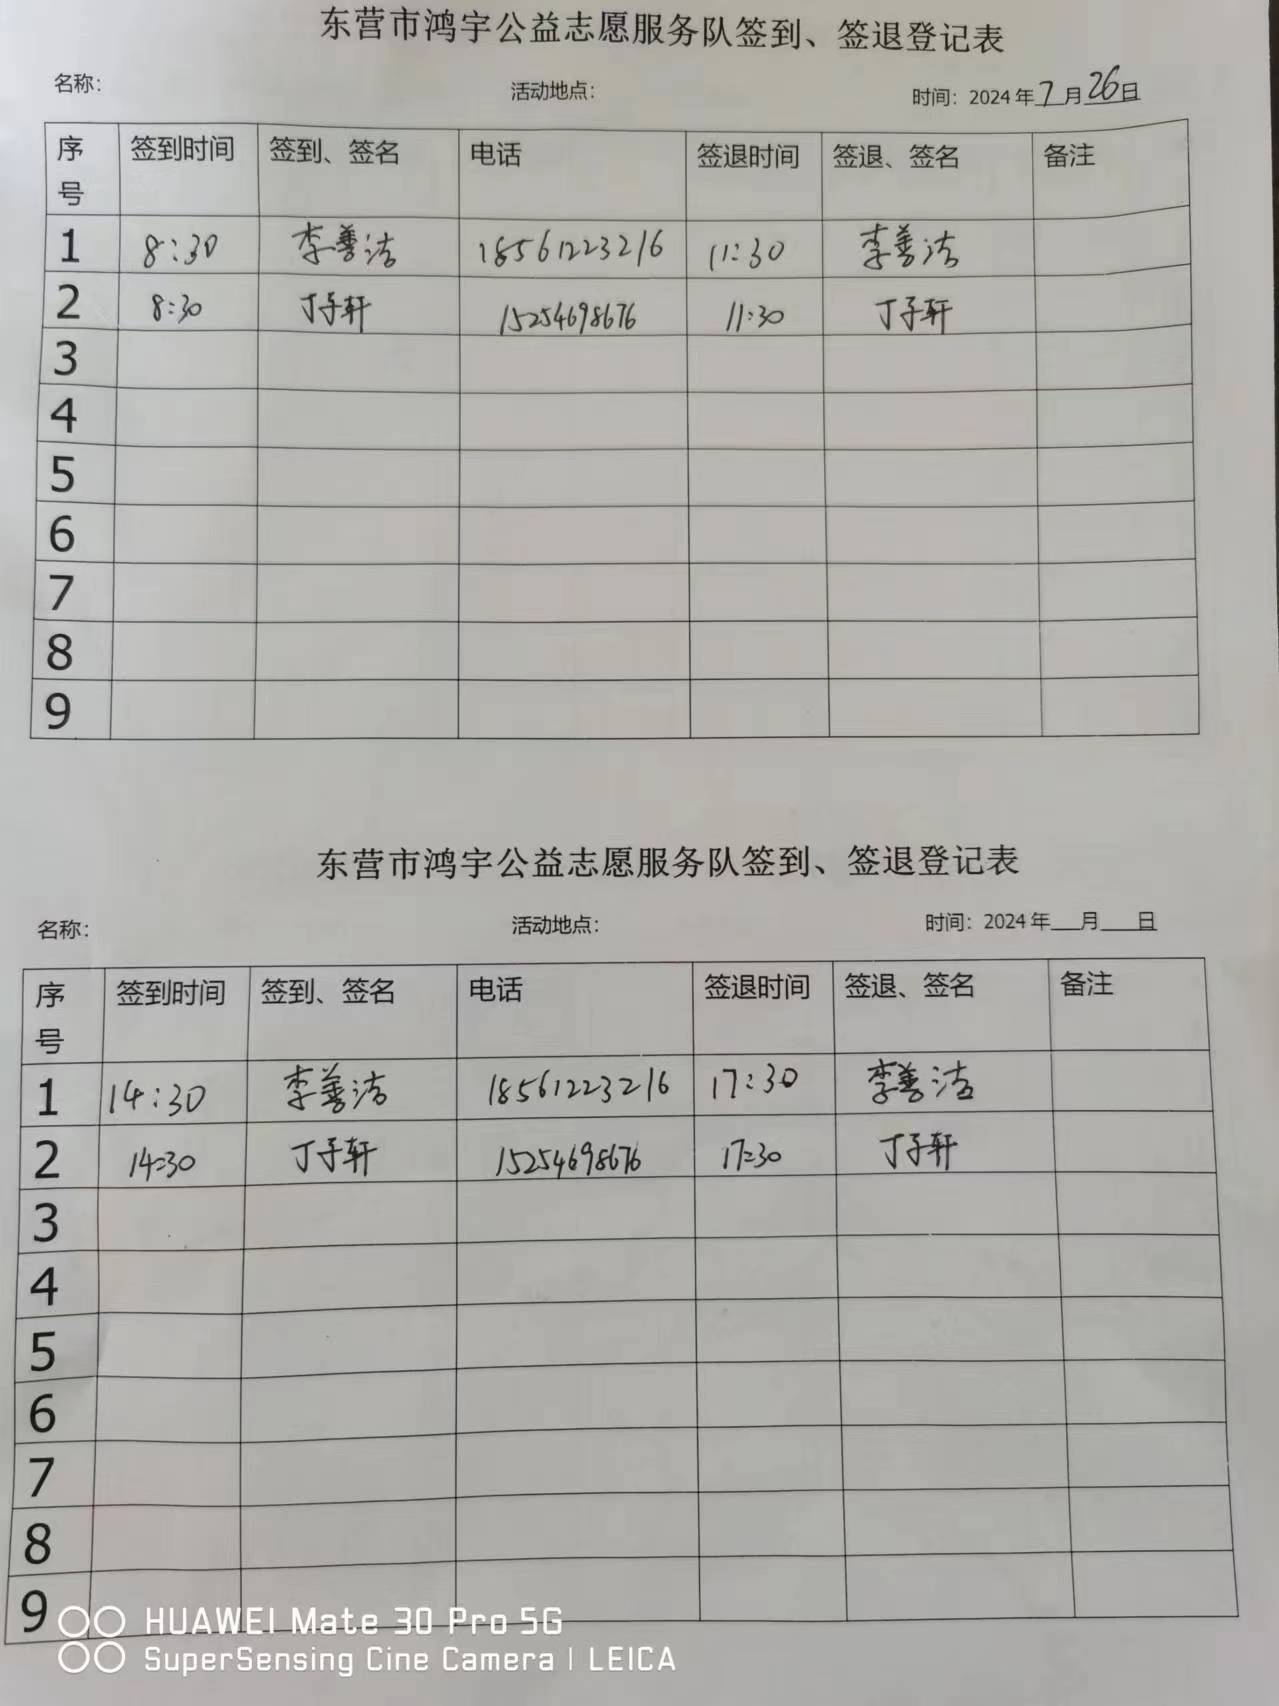 东营市鸿宇公益志愿服务队签到、签退登记表
名称： 活动地点： 时间：2024年7月26日
序号 签到时间 签到、签名 电话 签退时间 签退、签名 备注
1 8:30 李善洁 18561223216 11:30 李善洁
2 8:30 丁子轩 15254698676 11:30 丁子轩
3
4
5
6
7
8
9
东营市鸿宇公益志愿服务队签到、签退登记表
名称： 活动地点： 时间：2024年__月__日
序号 签到时间 签到、签名 电话 签退时间 签退、签名 备注
1 14:30 李善洁 18561223216 17:30 李善洁
2 14:30 丁子轩 15254698676 17:30 丁子轩
3
4
5
6
7
8
9
HUAWEI Mate 30 Pro 5G
SuperSensing Cine Camera | LEICA